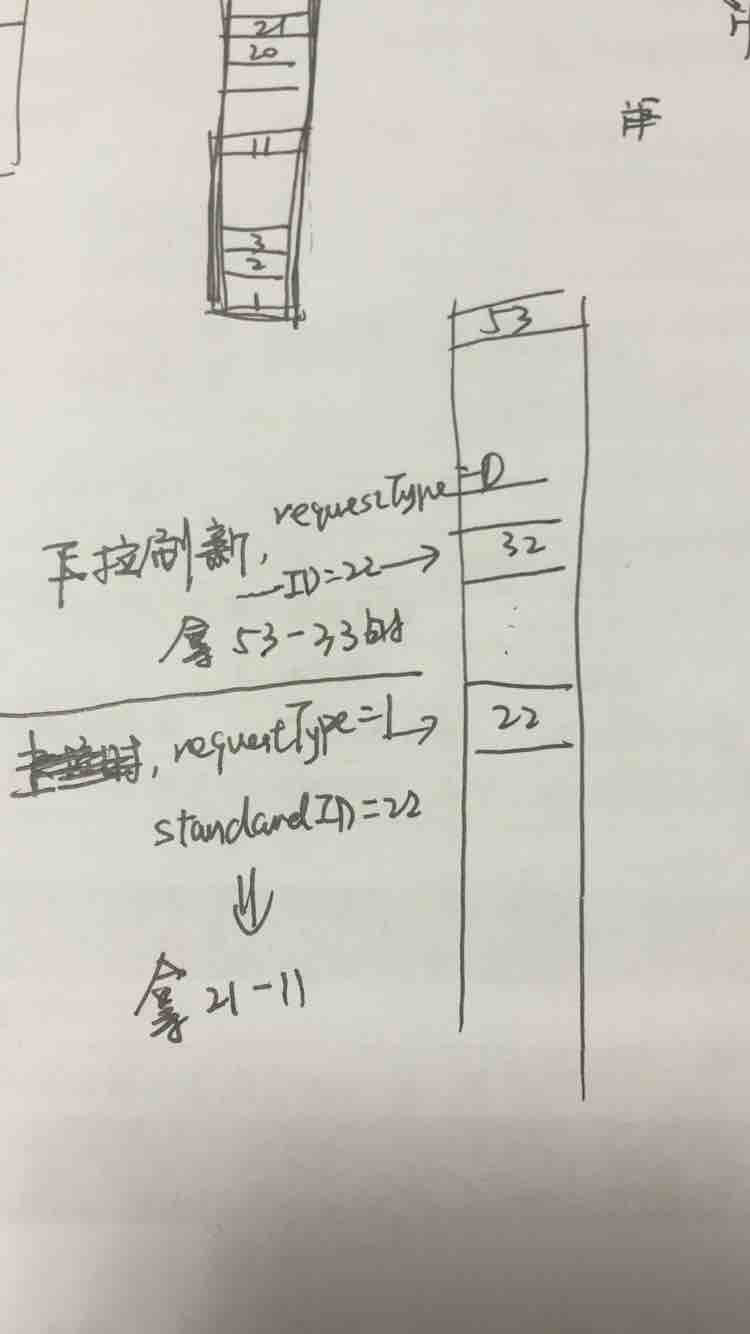 21
20
11
3
2
1
53
下拉刷新, requestType=D
ID=22→
32
拿 53-33的
requestType=1→
22
standardID=22
拿 21-11